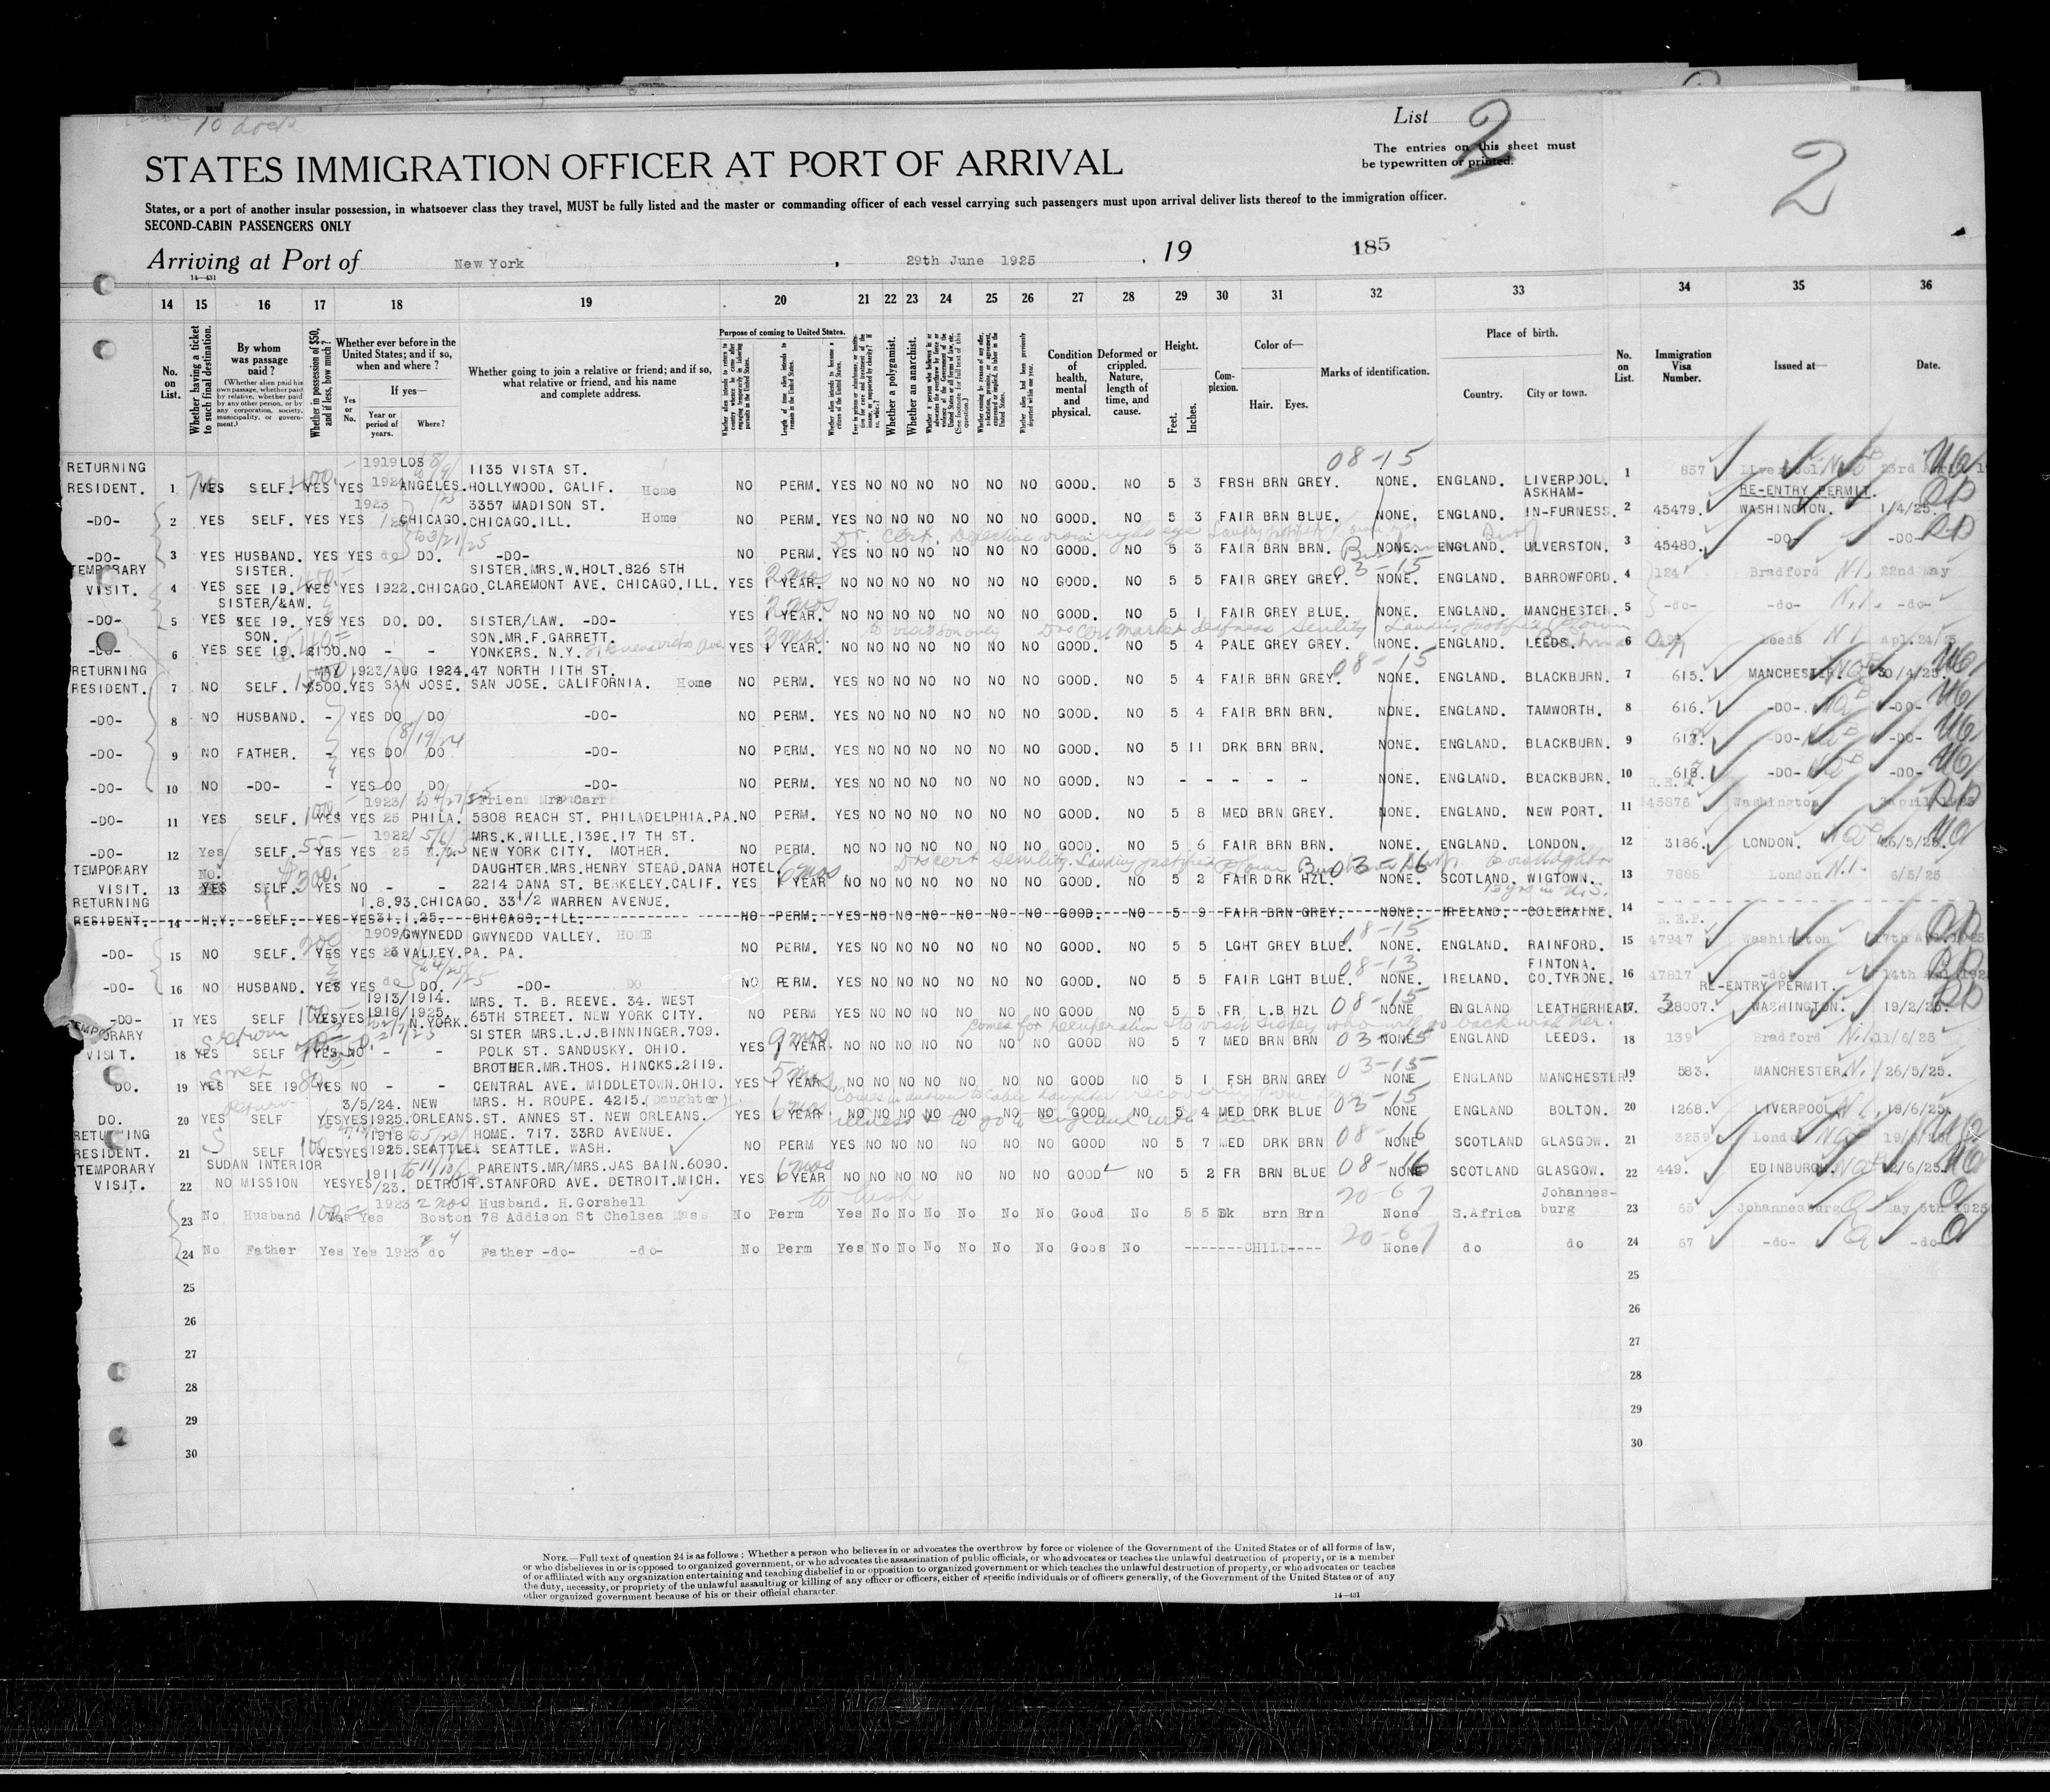 10 docs
List 2
The entries on this sheet must
be typewritten or printed.
2
STATES IMMIGRATION OFFICER AT PORT OF ARRIVAL
States, or a port of another insular possession, in whatsoever class they travel, MUST be fully listed and the master or commanding officer of each vessel carrying such passengers must upon arrival deliver lists thereof to the immigration officer.
SECOND-CABIN PASSENGERS ONLY
Arriving at Port of New York, 29th June 1925, 19 185
14—431
14 15 16 17 18 19 20 21 22 23 24 25 26 27 28 29 30 31 32 33 34 35 36
No. on List.
Whether having a ticket to such final destination.
By whom was passage paid?
(Whether alien paid his own passage, whether paid by relative, whether paid by any other person, or by any corporation, society, municipality, or government.)
Whether in possession of $50, and if less, how much?
Whether ever before in the United States; and if so, when and where?
If yes—
Yes or No.
Year or period of years.
Where?
Whether going to join a relative or friend; and if so, what relative or friend, and his name and complete address.
Purpose of coming to United States.
Length of time alien intends to remain in the United States.
Whether alien intends to become a citizen of the United States.
Whether a polygamist.
Whether an anarchist.
Condition of health, mental and physical.
Deformed or crippled. Nature, length of time, and cause.
Height.
Feet. Inches.
Complexion.
Color of—
Hair. Eyes.
Marks of identification.
Place of birth.
Country. City or town.
No. on List.
Immigration Visa Number.
Issued at—
Date.
RETURNING 1919 LOS 1135 VISTA ST. 08-15
RESIDENT. 1 YES SELF. YES YES ANGELES. HOLLYWOOD. CALIF. Home NO PERM. YES NO NO NO NO NO NO GOOD. NO 5 3 FRSH BRN GREY. NONE. ENGLAND. LIVERPOOL. 1 857 Liverpool
1923 3357 MADISON ST. ASKHAM- RE-ENTRY PERMIT.
-DO- 2 YES SELF. YES YES CHICAGO. CHICAGO.ILL. Home NO PERM. YES NO NO NO NO NO NO GOOD. NO 5 3 FAIR BRN BLUE. NONE. ENGLAND. IN-FURNESS. 2 45479. WASHINGTON. 1/4/25.
-DO- 3 YES HUSBAND. YES YES do DO. -DO- NO PERM. YES NO NO NO NO NO NO GOOD. NO 5 3 FAIR BRN BRN. NONE. ENGLAND. ULVERSTON. 3 45480. -DO- -DO-
TEMPORARY SISTER. SISTER.MRS.W.HOLT.826 STH 2 mos 03-15
VISIT. 4 YES SEE 19. YES YES 1922.CHICAGO. CLAREMONT AVE. CHICAGO.ILL. YES 1 YEAR. NO NO NO NO NO NO NO GOOD. NO 5 5 FAIR GREY GREY. NONE. ENGLAND. BARROWFORD. 4 124 Bradford N.I. 22nd May
SISTER/&AW. 2 mos
-DO- 5 YES SEE 19. YES YES DO. DO. SISTER/LAW. -DO- YES 1 YEAR. NO NO NO NO NO NO NO GOOD. NO 5 1 FAIR GREY BLUE. NONE. ENGLAND. MANCHESTER. 5 -do- -do- N.I. -do-
SON. SON.MR.F.GARRETT. 3 mos. to visit son only
-DO- 6 YES SEE 19. £100.NO - - YONKERS. N.Y. YES 1 YEAR. NO NO NO NO NO NO NO GOOD. NO 5 4 PALE GREY GREY. NONE. ENGLAND. LEEDS. 6 Leeds N.I. Apl.24/25
RETURNING MAY 1923/AUG 1924. 47 NORTH 11TH ST. 08-15
RESIDENT. 7 NO SELF. $500.YES SAN JOSE. SAN JOSE. CALIFORNIA. Home NO PERM. YES NO NO NO NO NO NO GOOD. NO 5 4 FAIR BRN GREY. NONE. ENGLAND. BLACKBURN. 7 615. MANCHESTER. 30/4/25.
-DO- 8 NO HUSBAND. - YES DO DO -DO- NO PERM. YES NO NO NO NO NO NO GOOD. NO 5 4 FAIR BRN BRN. NONE. ENGLAND. TAMWORTH. 8 616. -DO- -DO-
8/19/24
-DO- 9 NO FATHER. - YES DO DO -DO- NO PERM. YES NO NO NO NO NO NO GOOD. NO 5 11 DRK BRN BRN. NONE. ENGLAND. BLACKBURN. 9 -DO- -DO-
-DO- 10 NO -DO- - YES DO DO -DO- NO PERM. YES NO NO NO NO NO NO GOOD. NO - - - - - NONE. ENGLAND. BLACKBURN. 10 618. -DO- -DO-
1923/ Friend Mrs Carr R.E.P.
-DO- 11 YES SELF. YES YES 25 PHILA. 5808 REACH ST. PHILADELPHIA.PA. NO PERM. YES NO NO NO NO NO NO GOOD. NO 5 8 MED BRN GREY. NONE. ENGLAND. NEW PORT. 11 45876 Washington 3 april 1925
1922/ MRS.K.WILLE.139E.17 TH ST.
-DO- 12 Yes SELF. YES YES 25 NEW YORK CITY. MOTHER. NO PERM. YES NO NO NO NO NO NO GOOD. NO 5 6 FAIR BRN BRN. NONE. ENGLAND. LONDON. 12 3186. LONDON. 26/5/25.
TEMPORARY NO. DAUGHTER.MRS.HENRY STEAD.DANA HOTEL. 6 mos 03-16
VISIT. 13 YES SELF. YES NO - - 2214 DANA ST. BERKELEY.CALIF. YES 1 YEAR NO NO NO NO NO NO NO GOOD. NO 5 2 FAIR DRK HZL. NONE. SCOTLAND. WIGTOWN. 13 London N.I. 6/5/25
RETURNING 1.8.93.CHICAGO. 33 1/2 WARREN AVENUE.
RESIDENT. 14 N.Y. SELF. YES YES 31.1.25. CHICAGO. ILL. NO PERM. YES NO NO NO NO NO NO GOOD. NO 5 9 FAIR BRN GREY. NONE. IRELAND. COLERAINE. 14
1909/GWYNEDD GWYNEDD VALLEY. HOME 08-15 R.E.P.
-DO- 15 NO SELF. YES YES 25 VALLEY.PA. PA. NO PERM. YES NO NO NO NO NO NO GOOD. NO 5 5 LGHT GREY BLUE. NONE. ENGLAND. RAINFORD. 15 47947 Washington
08-13 FINTONA.
-DO- 16 NO HUSBAND. YES YES do DO. -DO- DO NO PERM. YES NO NO NO NO NO NO GOOD. NO 5 5 FAIR LGHT BLUE. NONE. IRELAND. CO.TYRONE. 16 47817 -do-
1913/1914. MRS. T. B. REEVE. 34. WEST 08-15 RE-ENTRY PERMIT.
-DO- 17 YES SELF YES YES 1918/1925. N.YORK. 65TH STREET. NEW YORK CITY. NO PERM YES NO NO NO NO NO NO GOOD NO 5 5 FR L.B HZL NONE ENGLAND LEATHERHEAD. 17 WASHINGTON. 19/2/25.
comes for recuperation & to visit sister who will go back with her.
TEMPORARY SISTER MRS.L.J.BINNINGER.709. 9 mos
VISIT. 18 YES SELF YES NO - - POLK ST. SANDUSKY. OHIO. YES 1 YEAR. NO NO NO NO NO NO NO GOOD NO 5 7 MED BRN BRN NONE ENGLAND LEEDS. 18 139 Bradford N.I. 11/6/25
BROTHER.MR.THOS. HINCKS.2119. 5 mos 03-15
DO. 19 YES SEE 19 YES NO - - CENTRAL AVE. MIDDLETOWN.OHIO. YES 1 YEAR NO NO NO NO NO NO NO GOOD NO 5 1 FSH BRN GREY NONE ENGLAND MANCHESTER. 19 583. MANCHESTER. 26/5/25.
return 3/5/24. NEW MRS. H. ROUPE. 4215. (Daughter) 6 mos 03-15
DO. 20 YES SELF YES YES 1925. ORLEANS. ST. ANNES ST. NEW ORLEANS. YES 1 YEAR. NO NO NO NO NO NO NO GOOD NO 5 4 MED DRK BLUE NONE ENGLAND BOLTON. 20 1268. LIVERPOOL 19/6/25.
illness & to go to England with her
RETURNING 1918 HOME. 717. 33RD AVENUE. 08-16
RESIDENT. 21 SELF YES YES 1925. SEATTLE. SEATTLE. WASH. NO PERM YES NO NO NO NO NO NO GOOD NO 5 7 MED DRK BRN NONE SCOTLAND GLASGOW. 21 3259
TEMPORARY SUDAN INTERIOR 1911 PARENTS.MR/MRS.JAS BAIN.6090. 6 mos 08-16
VISIT. 22 NO MISSION YES YES /23. DETROIT. STANFORD AVE. DETROIT.MICH. YES 1 YEAR NO NO NO NO NO NO NO GOOD NO 5 2 FR BRN BLUE NONE SCOTLAND GLASGOW. 22 449. EDINBURGH. 2/6/25.
1923 2 mos Husband. H.Gorshell 20-67 Johannes-
23 No Husband Yes Yes Boston 78 Addison St Chelsea Mass No Perm Yes No No No No No No Good No 5 5 Dk Brn Brn None S.Africa burg 23 65 Johannesburg May 5th 1925
20-67
24 No Father Yes Yes 1923 do Father -do- -do- No Perm Yes No No No No No No Goos No -------CHILD---- None do do 24 67 -do- -do-
25 25
26 26
27 27
28 28
29 29
30 30
NOTE.—Full text of question 24 is as follows: Whether a person who believes in or advocates the overthrow by force or violence of the Government of the United States or of all forms of law,
or who disbelieves in or is opposed to organized government, or who advocates the assassination of public officials, or who advocates or teaches the unlawful destruction of property, or is a member
of or affiliated with any organization entertaining and teaching disbelief in or opposition to organized government or which teaches the unlawful destruction of property, or who advocates or teaches
the duty, necessity, or propriety of the unlawful assaulting or killing of any officer or officers, either of specific individuals or of officers generally, of the Government of the United States or of any
other organized government because of his or their official character.
14—431